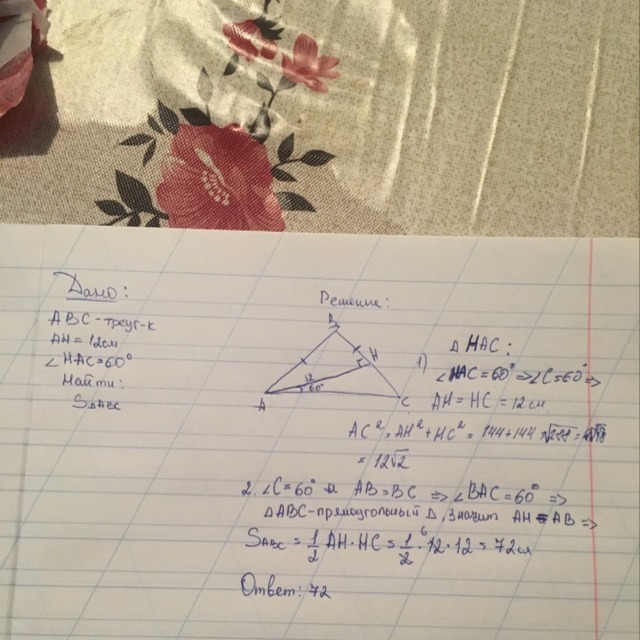 Дано:
ABC - треуг-к
AH = 12см
∠HAC = 60°
Найти:
S△ABC
Решение:
B
H
12
60°
A
C
1) △ HAC:
∠HAC = 60° ⇒ ∠C = 60° ⇒
AH = HC = 12 см
AC² = AH² + HC² = 144 + 144 = √288 =
= 12√2
2. ∠C = 60° и AB = BC ⇒ ∠BAC = 60° ⇒
△ABC - прямоугольный △, значит AH = AB ⇒
SABC = 1/2 AH · HC = 1/2 · 12 · 12 = 72см
6
Ответ: 72